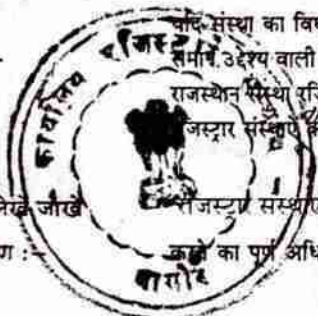 यदि संस्था का विघ
समान उद्देश्य वाली
राजस्थान संस्था रजि
रजिस्ट्रार संस्थाएं
लेखे जोखे
रजिस्ट्रार संस्थाएं
ण :-
करने का पूर्ण अधि
कार्यालय रजिस्ट्रार
नागौर